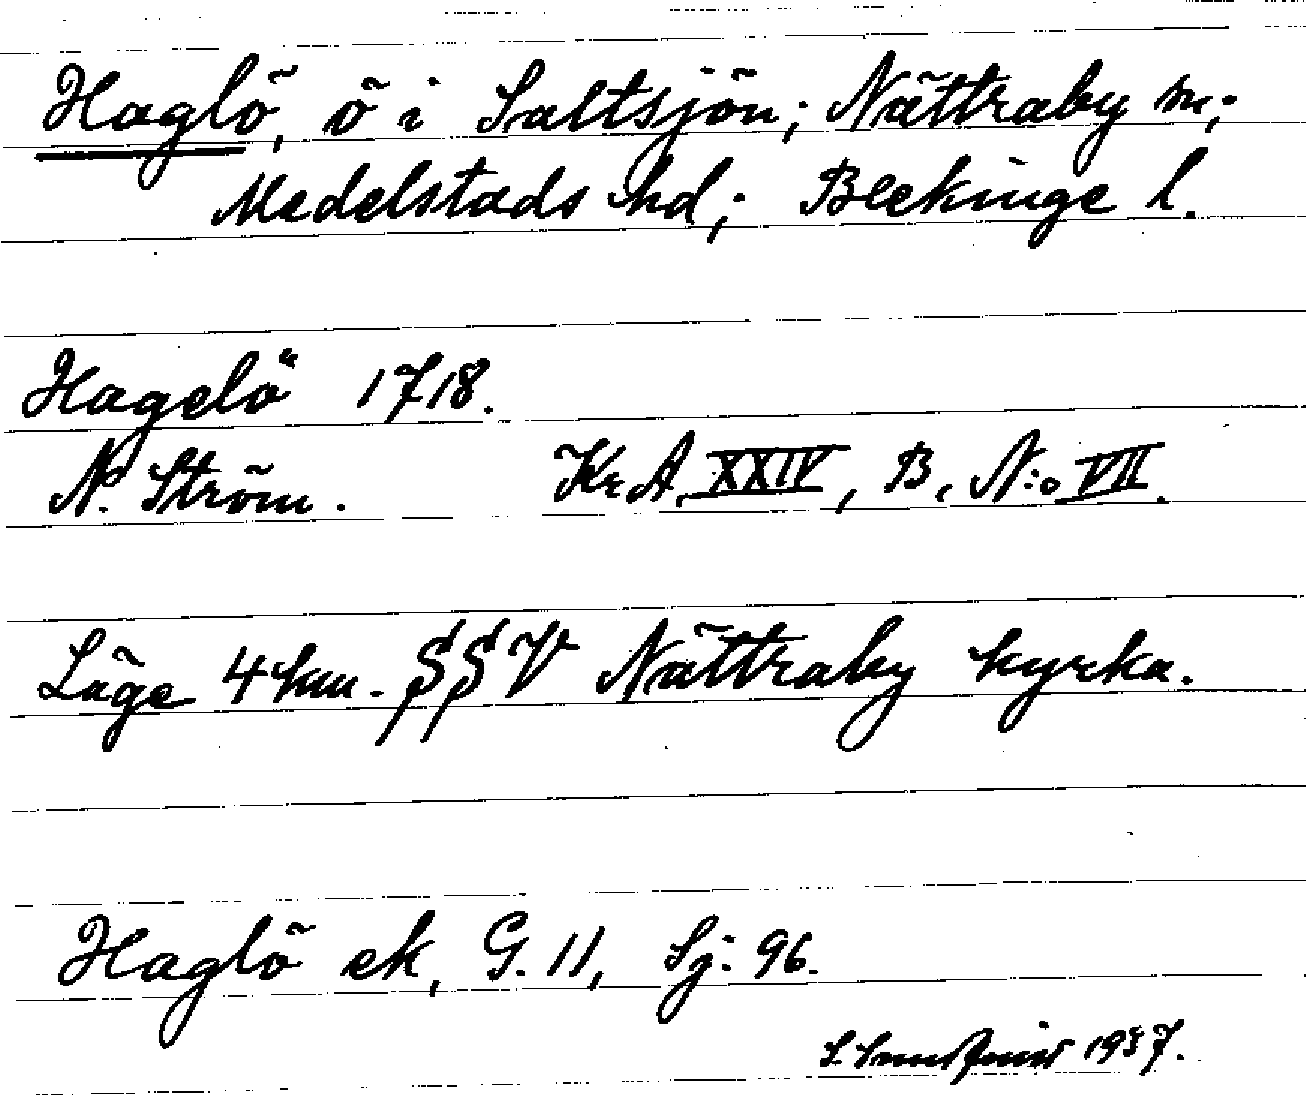 Haglö, ö i Saltsjön; Nättraby sn;
Medelstads hd; Blekinge l.
Hagelö 1718.
N. Ström. Kr. A. XXIV, B, N:o VII.
Läge 4 km. SSV Nättraby kyrka.
Haglö ek, G. 11, Sj: 96.
1937.